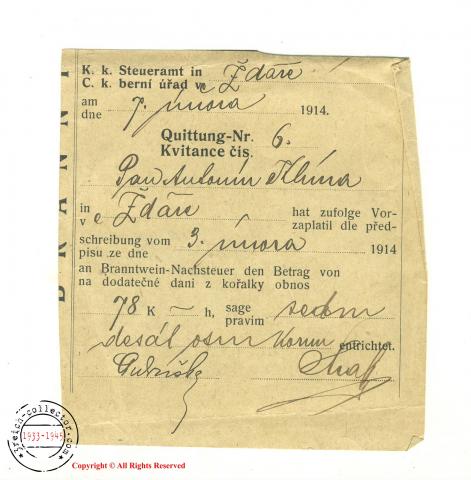 BRANNT
K. k. Steueramt in
C. k. berní úřad v e Ždáře
am
dne 7. února 1914.
Quittung-Nr.
Kvitance čís. 6.
Pan Antonín Klíma
in
v e Ždáře hat zufolge Vor-
zaplatil dle před-
schreibung vom
pisu ze dne 3. února 1914
an Branntwein-Nachsteuer den Betrag von
na dodatečné dani z kořalky obnos
78 K ~ h, sage
pravím sedm
desát osm Korun entrichtet.
3reich-collector.com
1933-1945
Copyright © All Rights Reserved